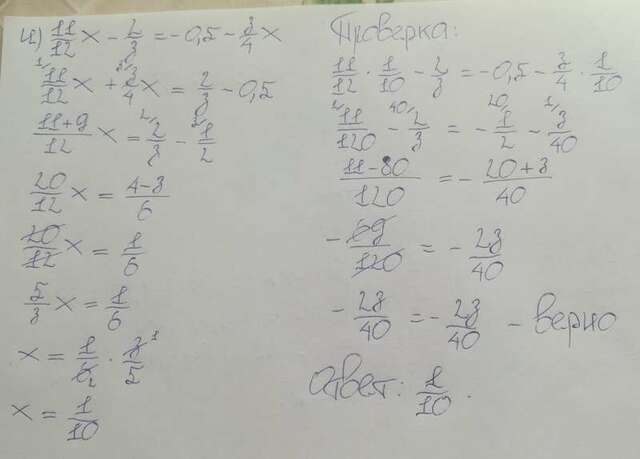 и) 11/12 x - 2/3 = -0,5 - 3/4 x
11/12 x + 3/4 x = 2/3 - 0,5
11+9/12 x = 2/3 - 1/2
20/12 x = 4-3/6
20/12 x = 1/6
5/3 x = 1/6
x = 1/6 · 3/5
x = 1/10
Проверка:
11/12 · 1/10 - 2/3 = -0,5 - 3/4 · 1/10
11/120 - 2/3 = - 1/2 - 3/40
11-80/120 = - 20+3/40
- 69/120 = - 23/40
- 23/40 = - 23/40 - верно
Ответ: 1/10.